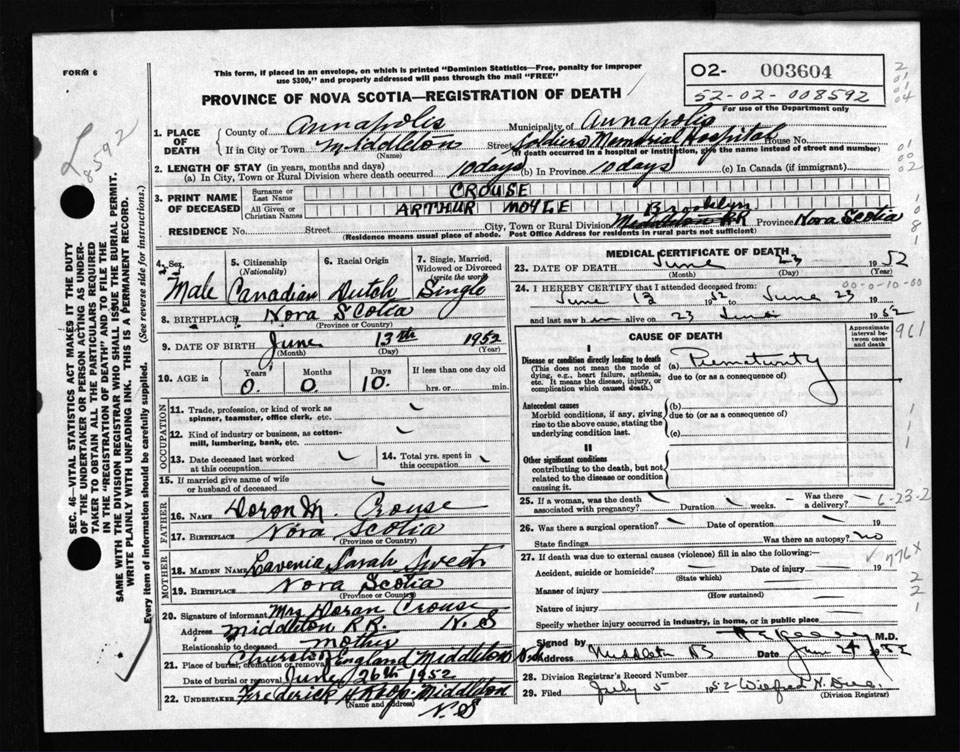 FORM 6
This form, if placed in an envelope, on which is printed "Dominion Statistics—Free, penalty for improper
use $300," and properly addressed will pass through the mail "FREE"
02- 003604
52-02-008592
For use of the Department only
PROVINCE OF NOVA SCOTIA—REGISTRATION OF DEATH
8592
1. PLACE OF DEATH
County of Annapolis Municipality of Annapolis
If in City or Town Middleton Street Soldiers Memorial Hospital House No.
(Name) (If death occurred in a hospital or institution, give the name instead of street and number)
2. LENGTH OF STAY (in years, months and days)
(a) In City, Town or Rural Division where death occurred 10 days (b) In Province 10 days (c) In Canada (if immigrant)
3. PRINT NAME OF DECEASED
Surname or Last Name CROUSE
All Given or Christian Names ARTHUR MOYLE
Brooklyn
RESIDENCE No. Street City, Town or Rural Division Middleton RR Province Nova Scotia
(Residence means usual place of abode. Post Office Address for residents in rural parts not sufficient)
SEC. 46—VITAL STATISTICS ACT MAKES IT THE DUTY
OF THE UNDERTAKER OR PERSON ACTING AS UNDER-
TAKER TO OBTAIN ALL THE PARTICULARS REQUIRED
IN THE "REGISTRATION OF DEATH" AND TO FILE THE
SAME WITH THE DIVISION REGISTRAR WHO SHALL ISSUE THE BURIAL PERMIT.
WRITE PLAINLY WITH UNFADING INK. THIS IS A PERMANENT RECORD.
Every item of information should be carefully supplied. (See reverse side for instructions.)
4. Sex Male
5. Citizenship (Nationality) Canadian
6. Racial Origin Dutch
7. Single, Married, Widowed or Divorced (write the word) Single
8. BIRTHPLACE Nova Scotia
(Province or Country)
9. DATE OF BIRTH June 13th 1952
(Month) (Day) (Year)
10. AGE IN Years 0 Months 0 Days 10 If less than one day old hrs. or min.
OCCUPATION
11. Trade, profession, or kind of work as spinner, teamster, office clerk, etc.
12. Kind of industry or business, as cotton-mill, lumbering, bank, etc.
13. Date deceased last worked at this occupation
14. Total yrs. spent in this occupation
15. If married give name of wife or husband of deceased
FATHER
16. NAME Doran M. Crouse
17. BIRTHPLACE Nova Scotia
(Province or Country)
MOTHER
18. MAIDEN NAME Lavenia Sarah
19. BIRTHPLACE Nova Scotia
(Province or Country)
20. Signature of informant Mrs Doran Crouse
Address Middleton RR. N.S
Relationship to deceased Mother
21. Place of burial, cremation or removal Church of England Middleton N.S.
Date of burial or removal June 26th 1952
22. UNDERTAKER Frederick Middleton
(Name and address) N.S
MEDICAL CERTIFICATE OF DEATH
23. DATE OF DEATH June 23 1952
(Month) (Day) (Year)
24. I HEREBY CERTIFY that I attended deceased from:
00-0-10-00
June 13 1952 to June 23 19
and last saw him alive on 23 June 1952
CAUSE OF DEATH
Approximate interval between onset and death
I
Disease or condition directly leading to death
(This does not mean the mode of dying, e.g., heart failure, asthenia, etc. It means the disease, injury, or complication which caused death.)
(a) Prematurity
due to (or as a consequence of)
Antecedent causes
Morbid conditions, if any, giving rise to the above cause, stating the underlying condition last.
(b)
due to (or as a consequence of)
(c)
II
Other significant conditions
contributing to the death, but not related to the disease or condition causing it.
25. If a woman, was the death associated with pregnancy? Duration weeks. Was there a delivery?
6-23-2
26. Was there a surgical operation? Date of operation 19
State findings Was there an autopsy? no
27. If death was due to external causes (violence) fill in also the following:—
776x
Accident, suicide or homicide? Date of injury 19
(State which)
Manner of injury
(How sustained)
Nature of injury
Specify whether injury occurred in industry, in home, or in public place
Signed by M.D.
Address Middleton NS Date June 24 1952
28. Division Registrar's Record Number
29. Filed July 5 1952 Wilfred H.
(Division Registrar)